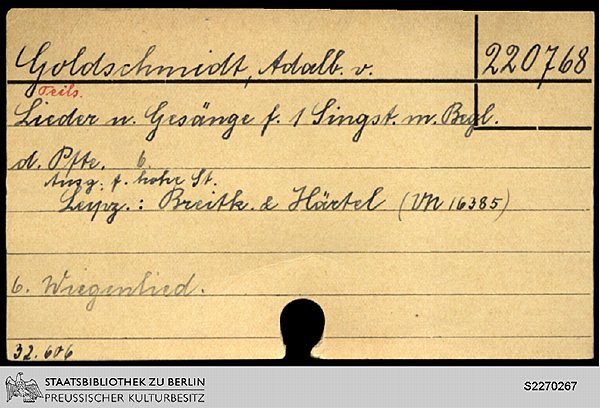 Goldschmidt, Adalb. v.
220768
Teils.
Lieder u. Gesänge f. 1 Singst. m. Begl.
d. Pfte. 6.
Ausg. f. hohe St.
Leipz.: Breitk. & Härtel (VN 16385)
6. Wiegenlied.
32.606
STAATSBIBLIOTHEK ZU BERLIN
PREUSSISCHER KULTURBESITZ
S2270267